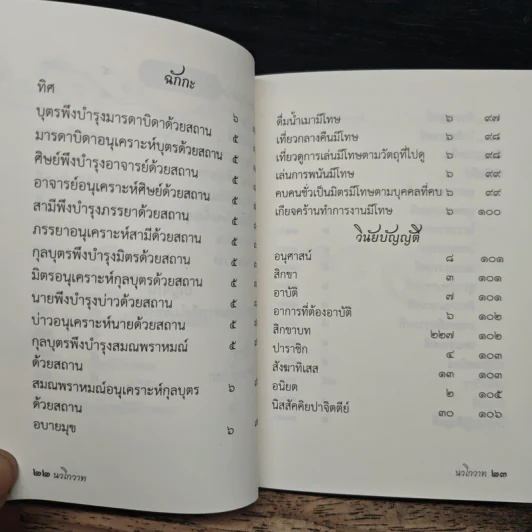 ฉักกะ
ทิศ ๖
บุตรพึงบำรุงมารดาบิดาด้วยสถาน ๕
มารดาบิดาอนุเคราะห์บุตรด้วยสถาน ๕
ศิษย์พึงบำรุงอาจารย์ด้วยสถาน ๕
อาจารย์อนุเคราะห์ศิษย์ด้วยสถาน ๕
สามีพึงบำรุงภรรยาด้วยสถาน ๕
ภรรยาอนุเคราะห์สามีด้วยสถาน ๕
กุลบุตรพึงบำรุงมิตรด้วยสถาน ๕
มิตรอนุเคราะห์กุลบุตรด้วยสถาน ๕
นายพึงบำรุงบ่าวด้วยสถาน ๕
บ่าวอนุเคราะห์นายด้วยสถาน ๕
กุลบุตรพึงบำรุงสมณพราหมณ์ ๕
ด้วยสถาน
สมณพราหมณ์อนุเคราะห์กุลบุตร ๖
ด้วยสถาน
อบายมุข ๖
๒๒ นวโกวาท
ดื่มน้ำเมามีโทษ ๖ ๙๗
เที่ยวกลางคืนมีโทษ ๖ ๙๘
เที่ยวดูการเล่นมีโทษตามวัตถุที่ไปดู ๖ ๙๘
เล่นการพนันมีโทษ ๖ ๙๙
คบคนชั่วเป็นมิตรมีโทษตามบุคคลที่คบ ๖ ๙๙
เกียจคร้านทำการงานมีโทษ ๖ ๑๐๐
วินัยบัญญัติ
อนุศาสน์ ๘ ๑๐๑
สิกขา ๓ ๑๐๑
อาบัติ ๗ ๑๐๑
อาการที่ต้องอาบัติ ๖ ๑๐๒
สิกขาบท ๒๒๗ ๑๐๒
ปาราชิก ๔ ๑๐๓
สังฆาทิเสส ๑๓ ๑๐๓
อนิยต ๒ ๑๐๕
นิสสัคคิยปาจิตตีย์ ๓๐ ๑๐๖
นวโกวาท ๒๓